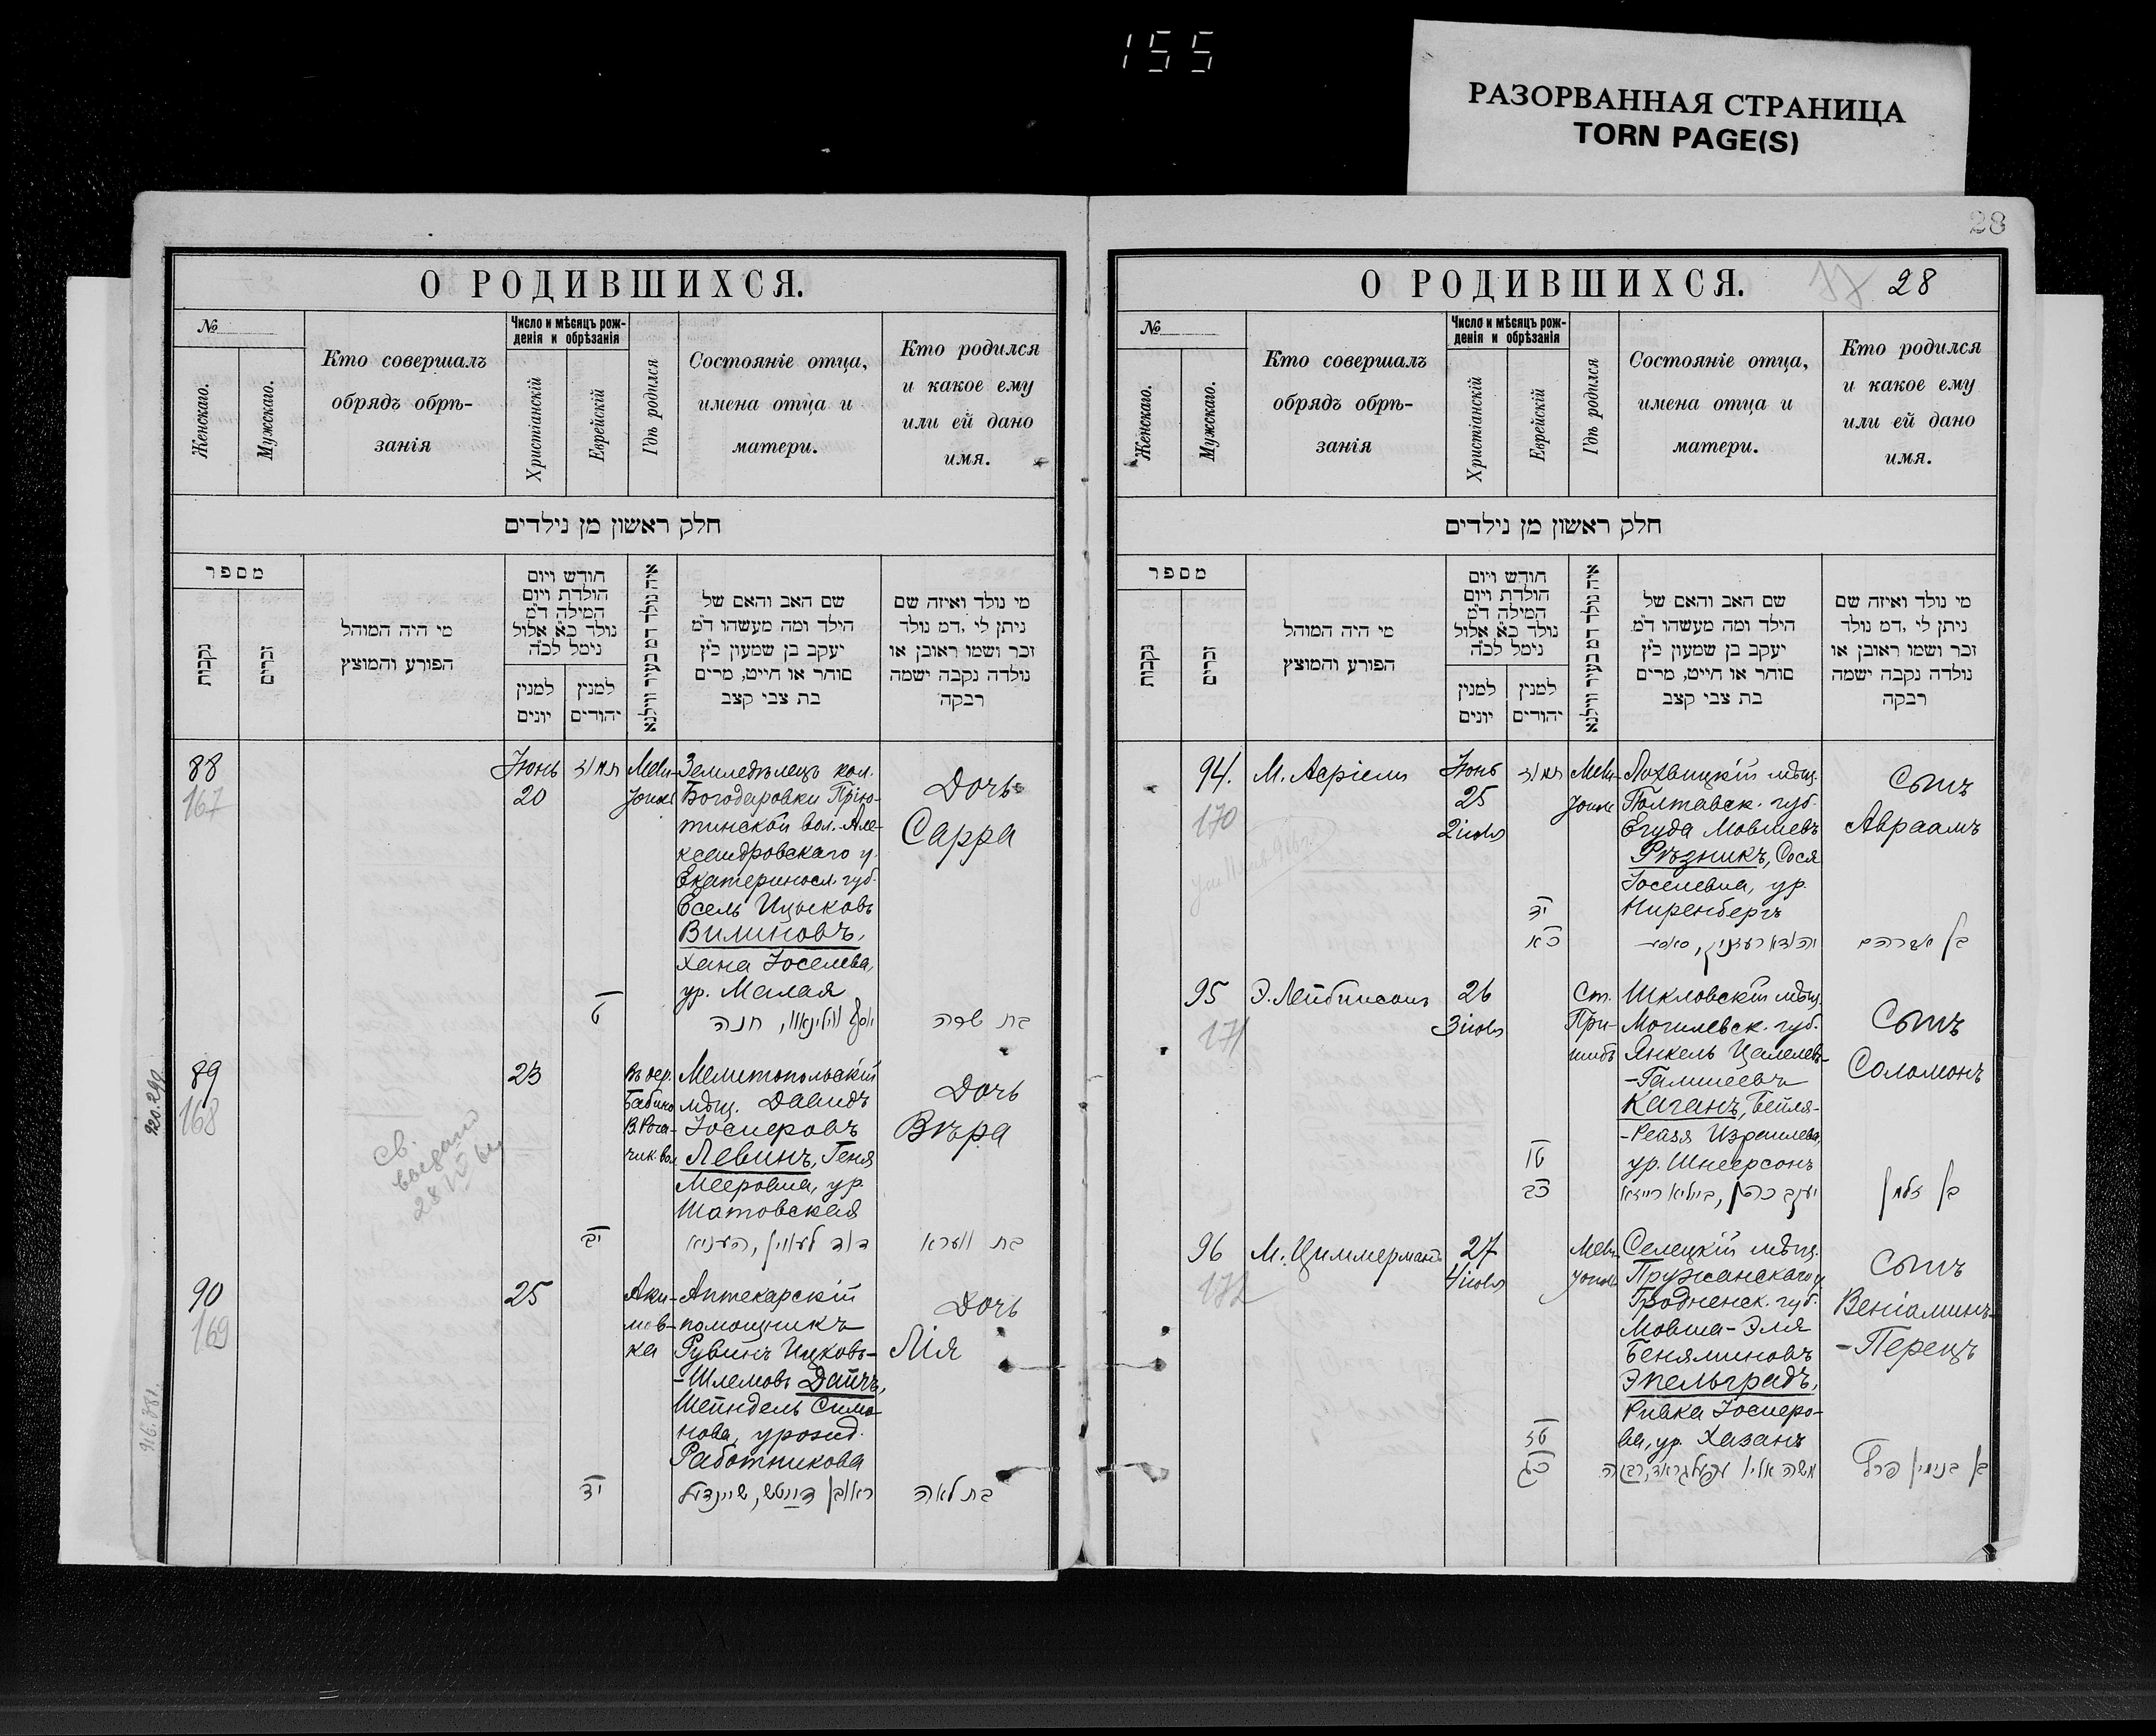 155
РАЗОРВАННАЯ СТРАНИЦА
TORN PAGE(S)
О РОДИВШИХСЯ.
№
Женскаго.
Мужскаго.
Кто совершалъ
обрядъ обрѣ-
занія
Число и мѣсяцъ рож-
денія и обрѣзанія
Христіанскій
Еврейскій
Гдѣ родился
Состояніе отца,
имена отца и
матери.
Кто родился
и какое ему
или ей дано
имя.
חלק ראשון מן נילדים
מספר
נקבות
זכרים
מי היה המוהל
הפורע והמוצץ
חודש ויום
הולדת ויום
המילה ד״מ
נולד כ״א אלול
נימל לכ״ה
למנין
יונים
למנין
יהודים
איה נולד דמ בעיר ווילנא
שם האב והאם של
הילד ומה מעשהו ד״מ
יעקב בן שמעון כ״ץ
סוחר או חייט, מרים
בת צבי קצב
מי נולד ואיזה שם
ניתן לי ,דמ נולד
זכר ושמו ראובן או
נולדה נקבה ישמה
רבקה
88
167
Іюнь
20
תמוז
Мели-
тополь
Земледѣлецъ кол.
Богодаровки Прію-
тинской вол. Але-
ксандровскаго у.
Екатериносл. губ.
Есель Ицыковъ
Вилиновъ,
Хана Іоселева,
ур. Малая
Дочь
Сарра
ט
חנה
בת שרה
89
168
Св.
выдано
28 IV
23
Бабино
Мелитопольскій
мѣщ. Давидъ
Іосифовъ
Левинъ, Геня
Мееровна, ур.
Шатовская
Дочь
Вѣра
יב
דוד לעווין, העניא
בת ווערא
90
169
25
Аки-
мов-
ка
Аптекарскій
помощникъ
Рувинъ Ицковъ-
-Шлемовъ Дайчъ,
Шейндель Симо-
нова, урожд.
Работникова
Дочь
Лія
יד
ראובן דייטש, שיינדיל
בת לאה
920.290
28
О РОДИВШИХСЯ.
28
№
Женскаго.
Мужскаго.
Кто совершалъ
обрядъ обрѣ-
занія
Число и мѣсяцъ рож-
денія и обрѣзанія
Христіанскій
Еврейскій
Гдѣ родился
Состояніе отца,
имена отца и
матери.
Кто родился
и какое ему
или ей дано
имя.
חלק ראשון מן נילדים
מספר
נקבות
זכרים
מי היה המוהל
הפורע והמוצץ
חודש ויום
הולדת ויום
המילה ד״מ
נולד כ״א אלול
נימל לכ״ה
למנין
יונים
למנין
יהודים
איה נולד דמ בעיר ווילנא
שם האב והאם של
הילד ומה מעשהו ד״מ
יעקב בן שמעון כ״ץ
סוחר או חייט, מרים
בת צבי קצב
מי נולד ואיזה שם
ניתן לי ,דמ נולד
זכר ושמו ראובן או
נולדה נקבה ישמה
רבקה
94.
170
М. Асріелъ
Іюнь
25
2 іюля
תמוז
Мели-
тополь
Лохвицкій мѣщ.
Полтавск. губ.
Егуда Мовшевъ
Рѣзникъ, Сося
Іоселевна, ур.
Ниренбергъ
Сынъ
Авраамъ
יד
כא
בן אברהם
95
171
Э. Лейбинсонъ
26
3 іюля
Ст.
При-
шибъ
Шкловскій мѣщ.
Могилевск. губ.
Янкель Цалелевъ-
-Галилеевъ
Каганъ, Бейля-
-Рейзя Израилева,
ур. Шнеерсонъ
Сынъ
Соломонъ
טו
כב
יעקב כהן, ביילא רייזא
בן זלמן
96
172
М. Циммерманъ
27
4 іюля
Мели-
тополь
Селецкій мѣщ.
Пружанскаго у.
Гродненск. губ.
Мовша-Эля
Беняминовъ
Эпельградъ,
Ривка Іосифо-
ва, ур. Хазанъ
Сынъ
Веніаминъ-
-Перецъ
טז
כג
משה אליו עפעלגראד, רבקה
בן בנימין פרץ